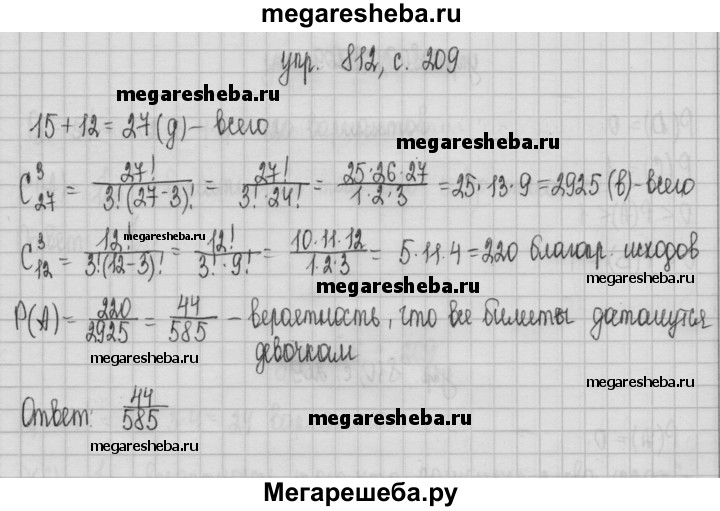 megaresheba.ru
упр. 812, с. 209
megaresheba.ru
15 + 12 = 27 (д) – всего
megaresheba.ru
C³₂₇ = 27! / 3!(27-3)! = 27! / 3!·24! = 25·26·27 / 1·2·3 = 25·13·9 = 2925 (в) – всего
C³₁₂ = 12! / 3!(12-3)! = 12! / 3!·9! = 10·11·12 / 1·2·3 = 5·11·4 = 220 благопр. исходов
megaresheba.ru megaresheba.ru
megaresheba.ru
P(A) = 220 / 2925 = 44 / 585 – вероятность, что все билеты достанутся
девочкам
megaresheba.ru
megaresheba.ru
Ответ: 44 / 585
megaresheba.ru
Мегарешеба.ру